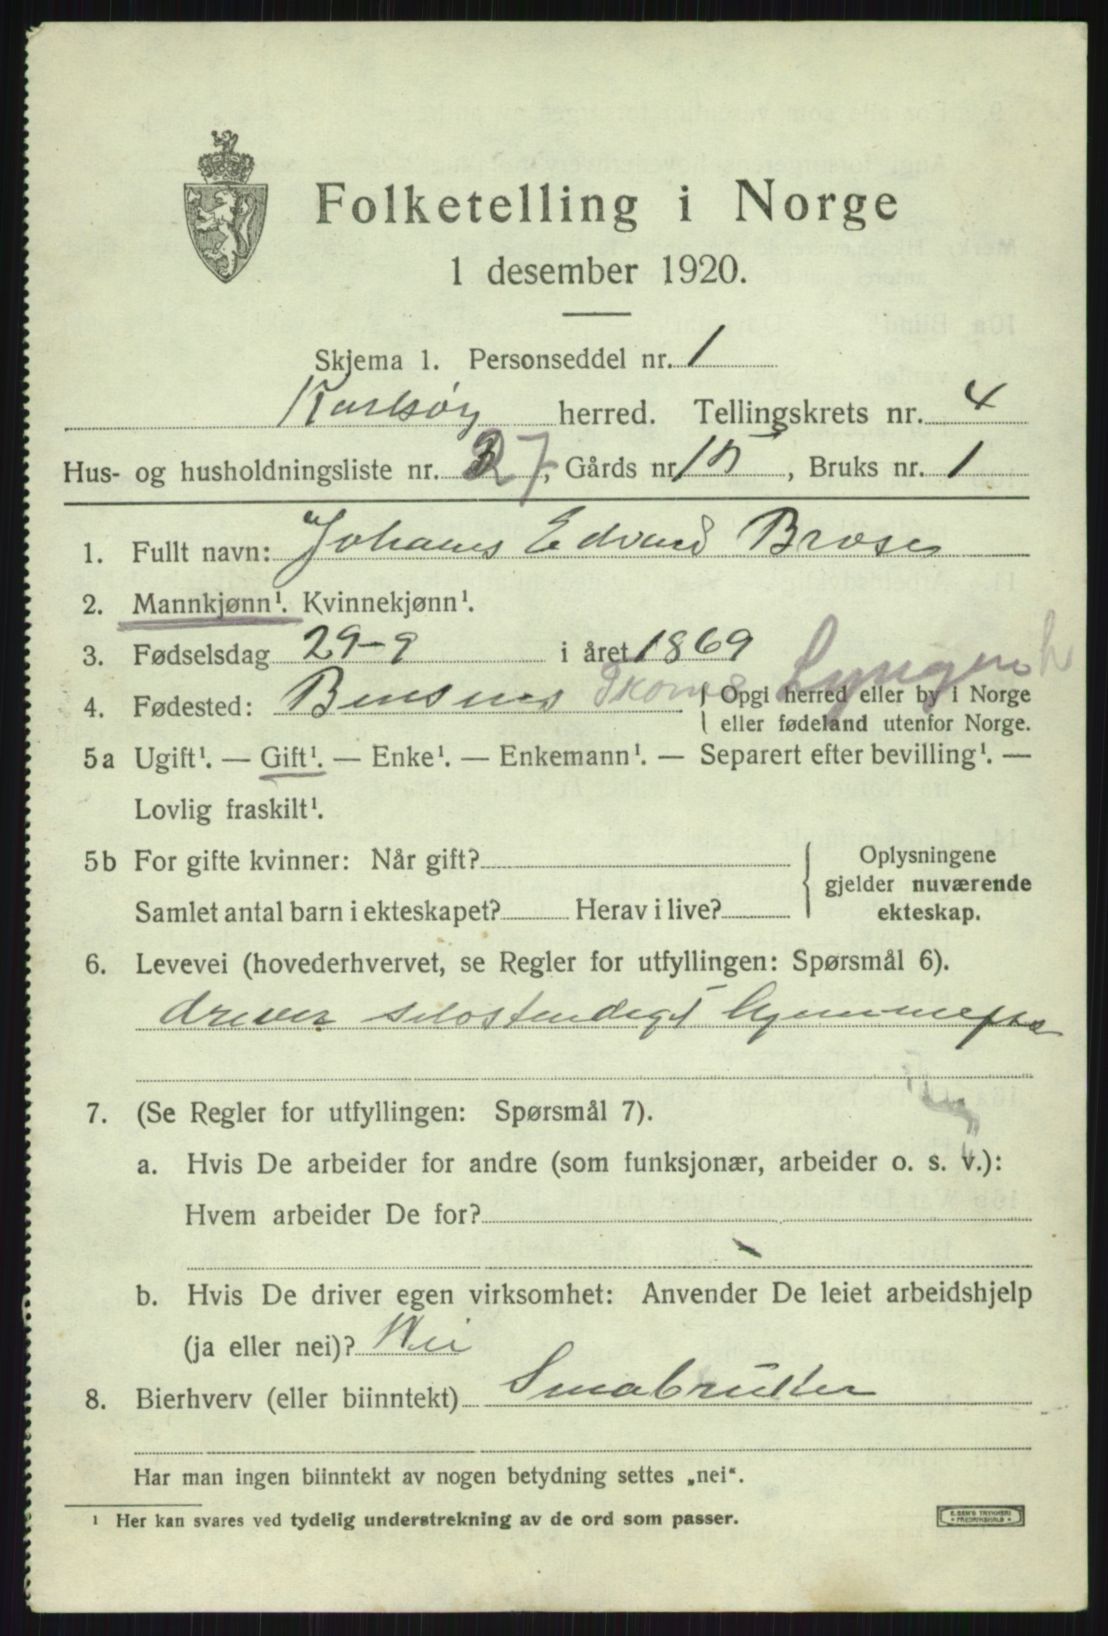 Folketelling i Norge
1 desember 1920.
Skjema 1. Personseddel nr. 1
Karlsøy herred. Tellingskrets nr. 4
Hus- og husholdningsliste nr. 27, Gårds nr. 15, Bruks nr. 1
1. Fullt navn: Johans Edvard
2. Mannkjønn¹. Kvinnekjønn¹.
3. Fødselsdag 29-9 i året 1869
4. Fødested: Bensnes Lyngen
Opgi herred eller by i Norge
eller fødeland utenfor Norge.
5a Ugift¹. — Gift¹. — Enke¹. — Enkemann¹. — Separert efter bevilling¹. —
Lovlig fraskilt¹.
5b For gifte kvinner: Når gift?
Samlet antal barn i ekteskapet? Herav i live?
Oplysningene
gjelder nuværende
ekteskap.
6. Levevei (hovederhvervet, se Regler for utfyllingen: Spørsmål 6).
driver selvstendigt
7. (Se Regler for utfyllingen: Spørsmål 7).
a. Hvis De arbeider for andre (som funksjonær, arbeider o. s. v.):
Hvem arbeider De for?
b. Hvis De driver egen virksomhet: Anvender De leiet arbeidshjelp
(ja eller nei)? Nei
8. Bierhverv (eller biinntekt) Smabruker
Har man ingen biinntekt av nogen betydning settes „nei“.
¹ Her kan svares ved tydelig understrekning av de ord som passer.